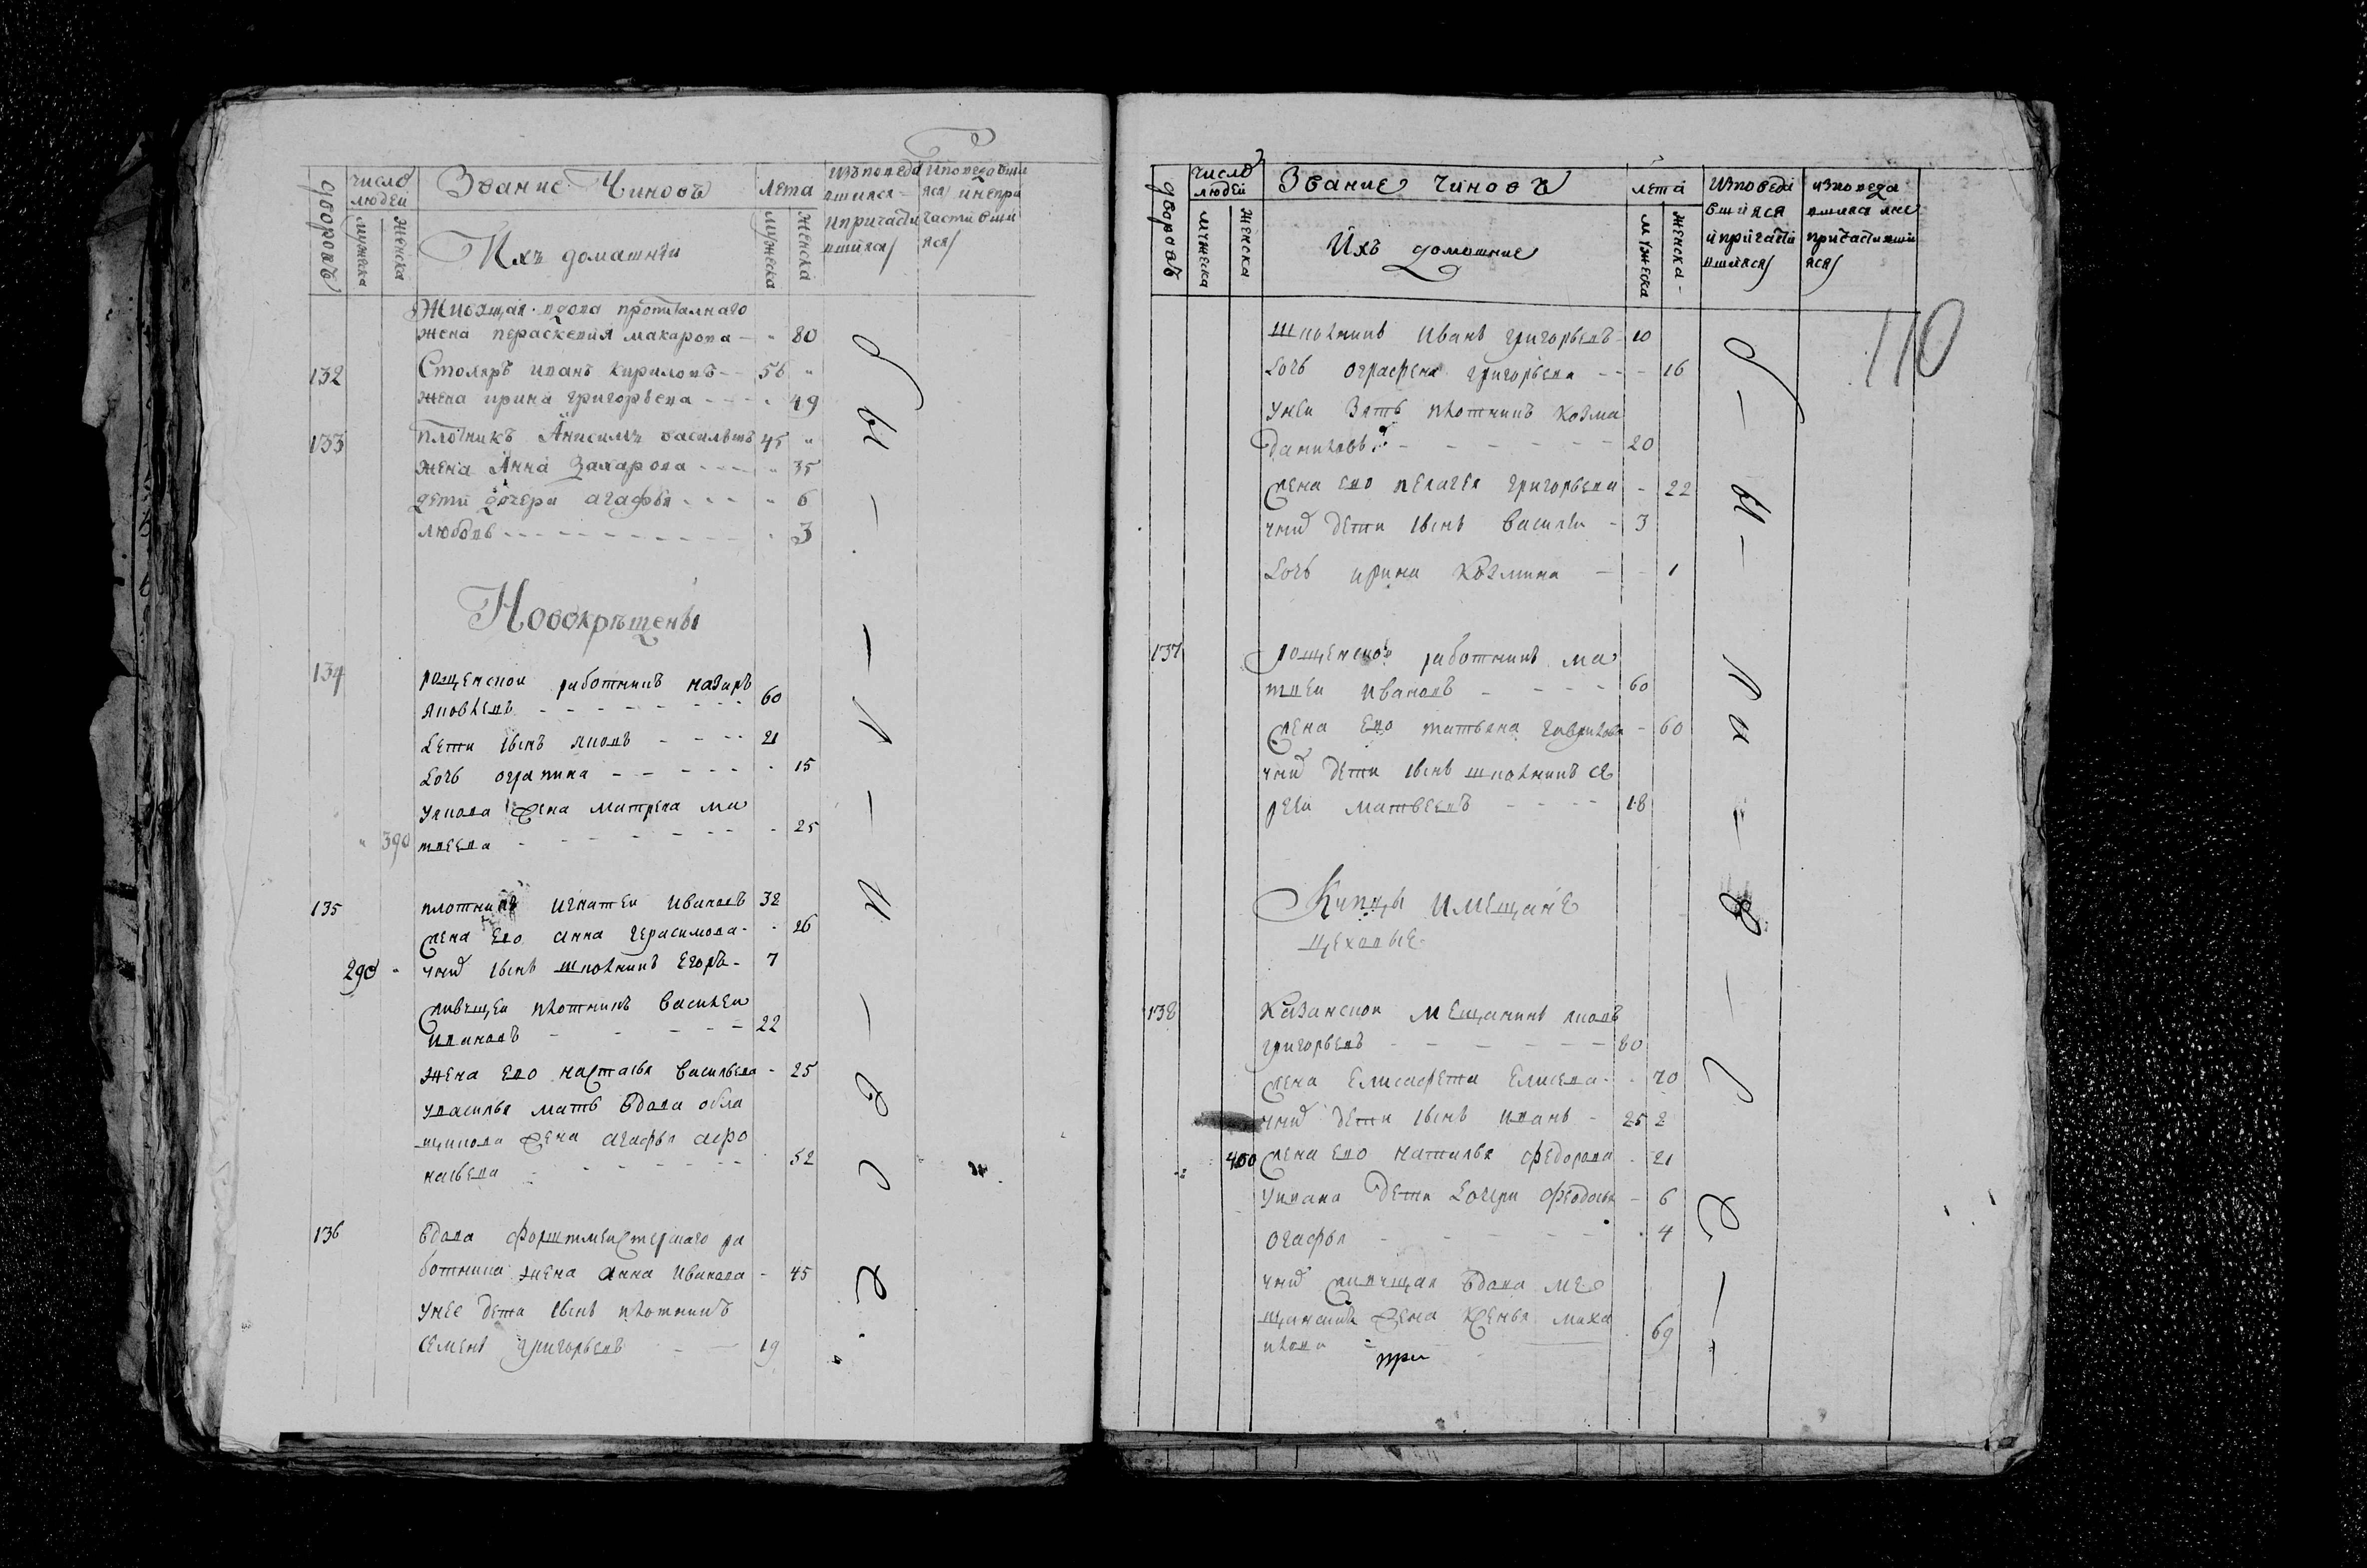 дворовъ
число людей
мужеска
женска
Звание Чиновъ
Ихъ домашнïи
лета
мужеска
женска
Изповедавшияся и причастившияся
Исповедавшияся и непричастившияся
Живущая вдова пропиталнаго
жена пераскевия макарова - 80
132 Столяръ иванъ кириловъ - 56
жена ирина григорьева - 49
133 плотникъ Анисимъ васильевъ 45
жена Анна Захарова - 35
дети дочери агафья - 6
любовь - 3
Новокрещены
134 рощенской работникъ назаръ
яковлевъ - 60
дети сынъ яковъ - 21
дочь ограпина - 15
У якова жена матрена ма
390 твеева - 25
135 плотникъ игнатеи ивановъ 32
жена ево анна герасимова - 26
290 унихъ сынъ школникъ егоръ - 7
живущеи плотникъ василеи
ивановъ - 22
жена ево настасья васильева - 25
увасилья мать вдова
жена агафья афо
насьева - 52
136 вдова форштмейстерскаго ра
ботника жена анна иванова - 45
унее дети сынъ плотникъ
семенъ григорьевъ - 19
110
дворовъ
число людей
мужеска
женска
Звание чиновъ
Ихъ домашние
лета
мужеска
женска
Изповедавшияся и причастившияся
изповедавшияся и не причастившияся
школникъ иванъ григорьевъ - 10
дочь ографена григорьева - 16
унеи зять плотникъ козма
даниловъ - 20
жена ево пелагея григорьева - 22
унихъ дети сынъ василеи - 3
дочь ирина козмина - 1
137 рощенской работникъ ма
твеи ивановъ - 60
жена ево татьяна гаврилова - 60
унихъ дети сынъ школникъ се
ргеи матвеевъ - 18
Купцы и мещане
цеховые
138 казанской мещанинъ яковъ
григорьевъ - 80
жена елисафета елисева - 70
унихъ дети сынъ иванъ - 25 2
400 жена ево наталья федорова - 21
уивана дети дочери феодосья - 6
огафья - 4
унихъ живущая вдова ме
щанская жена ксенья миха
илова - 69
при